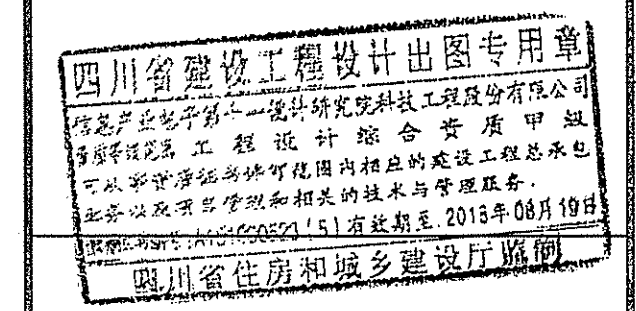 四川省建设工程设计出图专用章
信息产业电子第十一设计研究院科技工程股份有限公司
资质等级范围 工程设计综合资质甲级
可从事资质证书许可范围内相应的建设工程总承包
业务以及项目管理和相关的技术与管理服务.
(5)有效期至.2013年08月19日
四川省住房和城乡建设厅监制